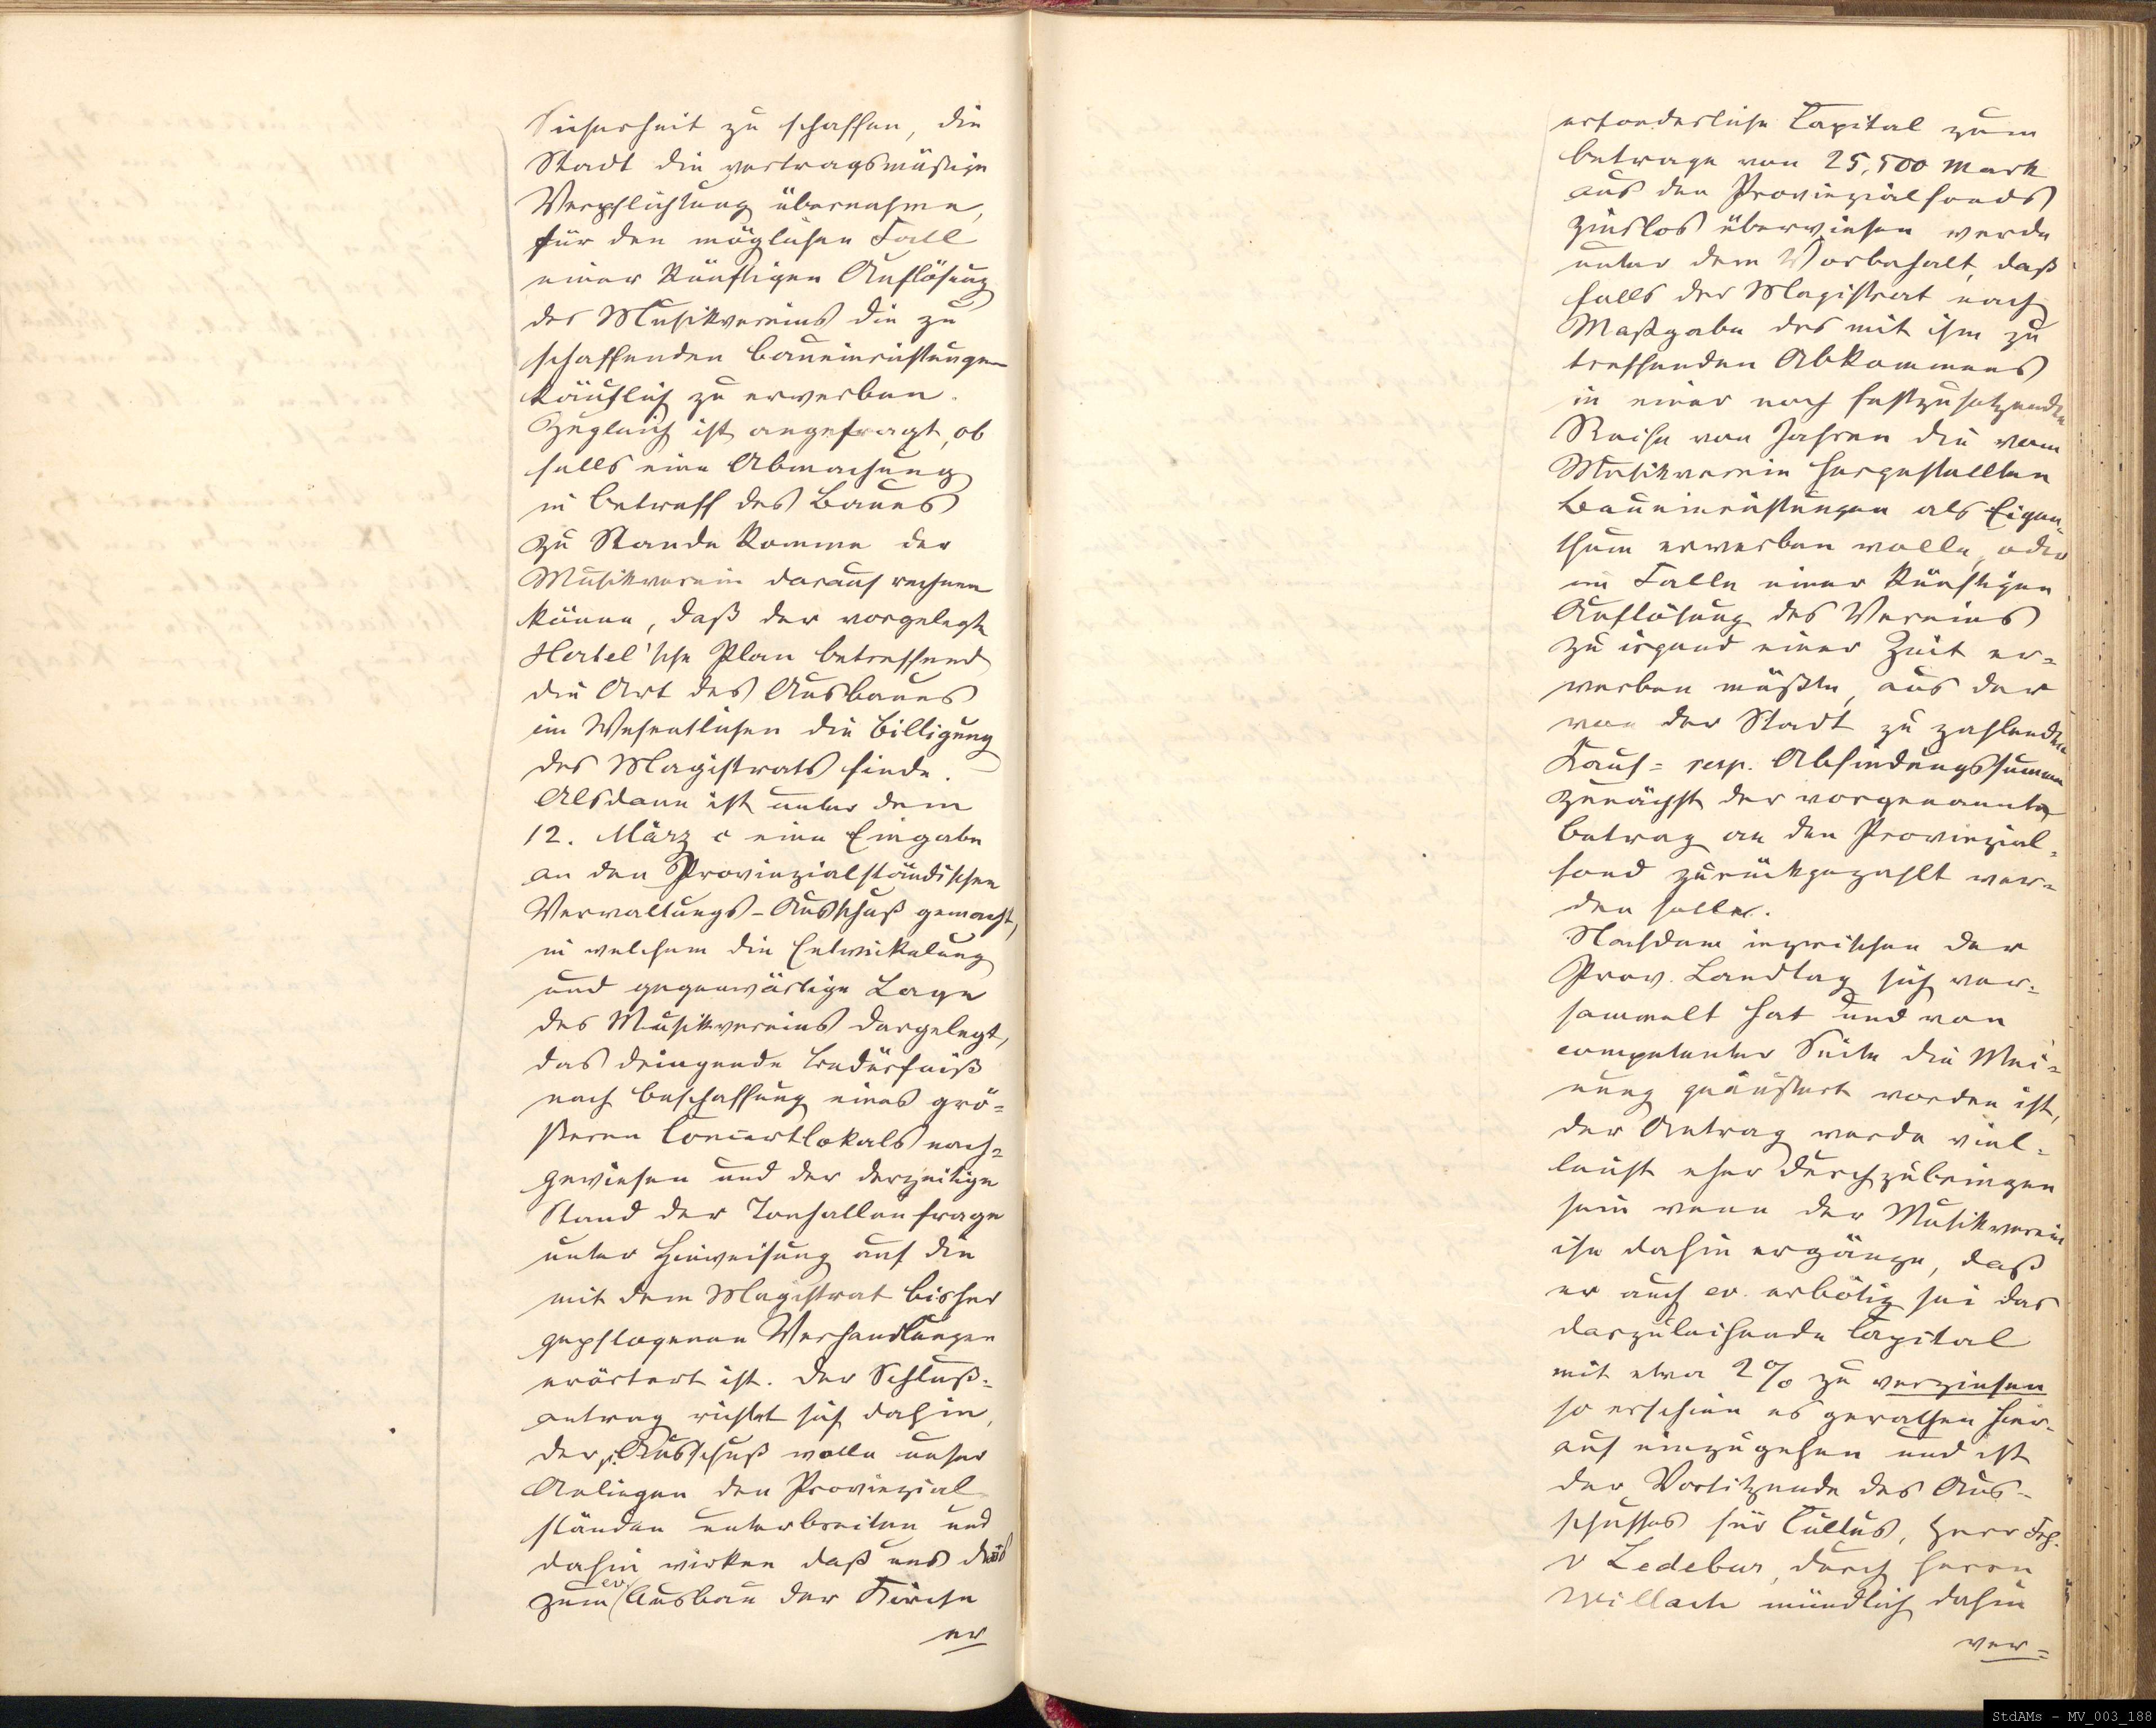 Sicherheit zu schaffen, die
Stadt die vertragsmäßige
Verpflichtung übernehme,
für den möglichen Fall
einer künftigen Auflösung
des Musikvereins die zu
schaffenden Baueinrichtungen
käuflich zu erwerben.
Zugleich ist angefragt, ob
falls eine Abmachung
in Betreff des Baues
zu Stande komme der
Musikverein darauf rechnen
könne, daß der vorgelegte
Hertel'sche Plan betreffend
die Art des Ausbaues
im Wesentlichen die Billigung
des Magistrats finde.
Alsdann ist unter dem
12. März c eine Eingabe
an den Provinzialständischen
Verwaltungs-Ausschuß gemacht,
in welchem die Entwickelung
und gegenwärtige Lage
des Musikvereins dargelegt,
das dringende Bedürfniß
nach Beschaffung eines grö-
ßeren Concertlokals nach-
gewiesen und der derzeitige
Stand der Tonhallenfrage
unter Hinweisung auf die
mit dem Magistrat bisher
gepflogenen Verhandlungen
erörtert ist. Der Schluß-
antrag richtet sich dahin,
der p. Ausschuß wolle unser
Anliegen den Provinzial
ständen unterbreiten und
dahin wirken daß uns das
zum ev. Ausbau der Kirche
er
erforderliche Capital zum
Betrage von 25,500 Mark
aus den Provinzialfonds
zinslos überwiesen werde
unter dem Vorbehalt, daß
falls der Magistrat nach
Maßgabe des mit ihm zu
treffenden Abkommens
in einer noch festzusetzenden
Reihe von Jahren die vom
Musikverein hergestellten
Baueinrichtungen als Eigen-
thum erwerben wolle, oder
im Falle einer künftigen
Auflösung des Vereins
zu irgend einer Zeit er-
werben müßte, aus der
von der Stadt zu zahlenden
Kauf- resp. Abfindungssumme
zunächst der vorgenannte
Betrag an den Provinzial-
fond zurückgezahlt wer-
den solle.
Nachdem inzwischen der
Prov. Landtag sich ver-
sammelt hat und von
competenter Seite die Mei-
nung geäußert worden ist,
der Antrag werde viel-
leicht eher durchzubringen
sein wenn der Musikverein
ihn dahin ergänze, daß
er auch ev. erbötig sei das
darzuleihende Capital
mit etwa 2% zu verzinsen
so erschien es gerathen hier-
auf einzugehen und ist
der Vorsitzende des Aus-
schusses für Cultus, Herr Frh.
v Ledebur, durch Herrn
Willach mündlich dahin
ver-
StdAMs - MV_003_188